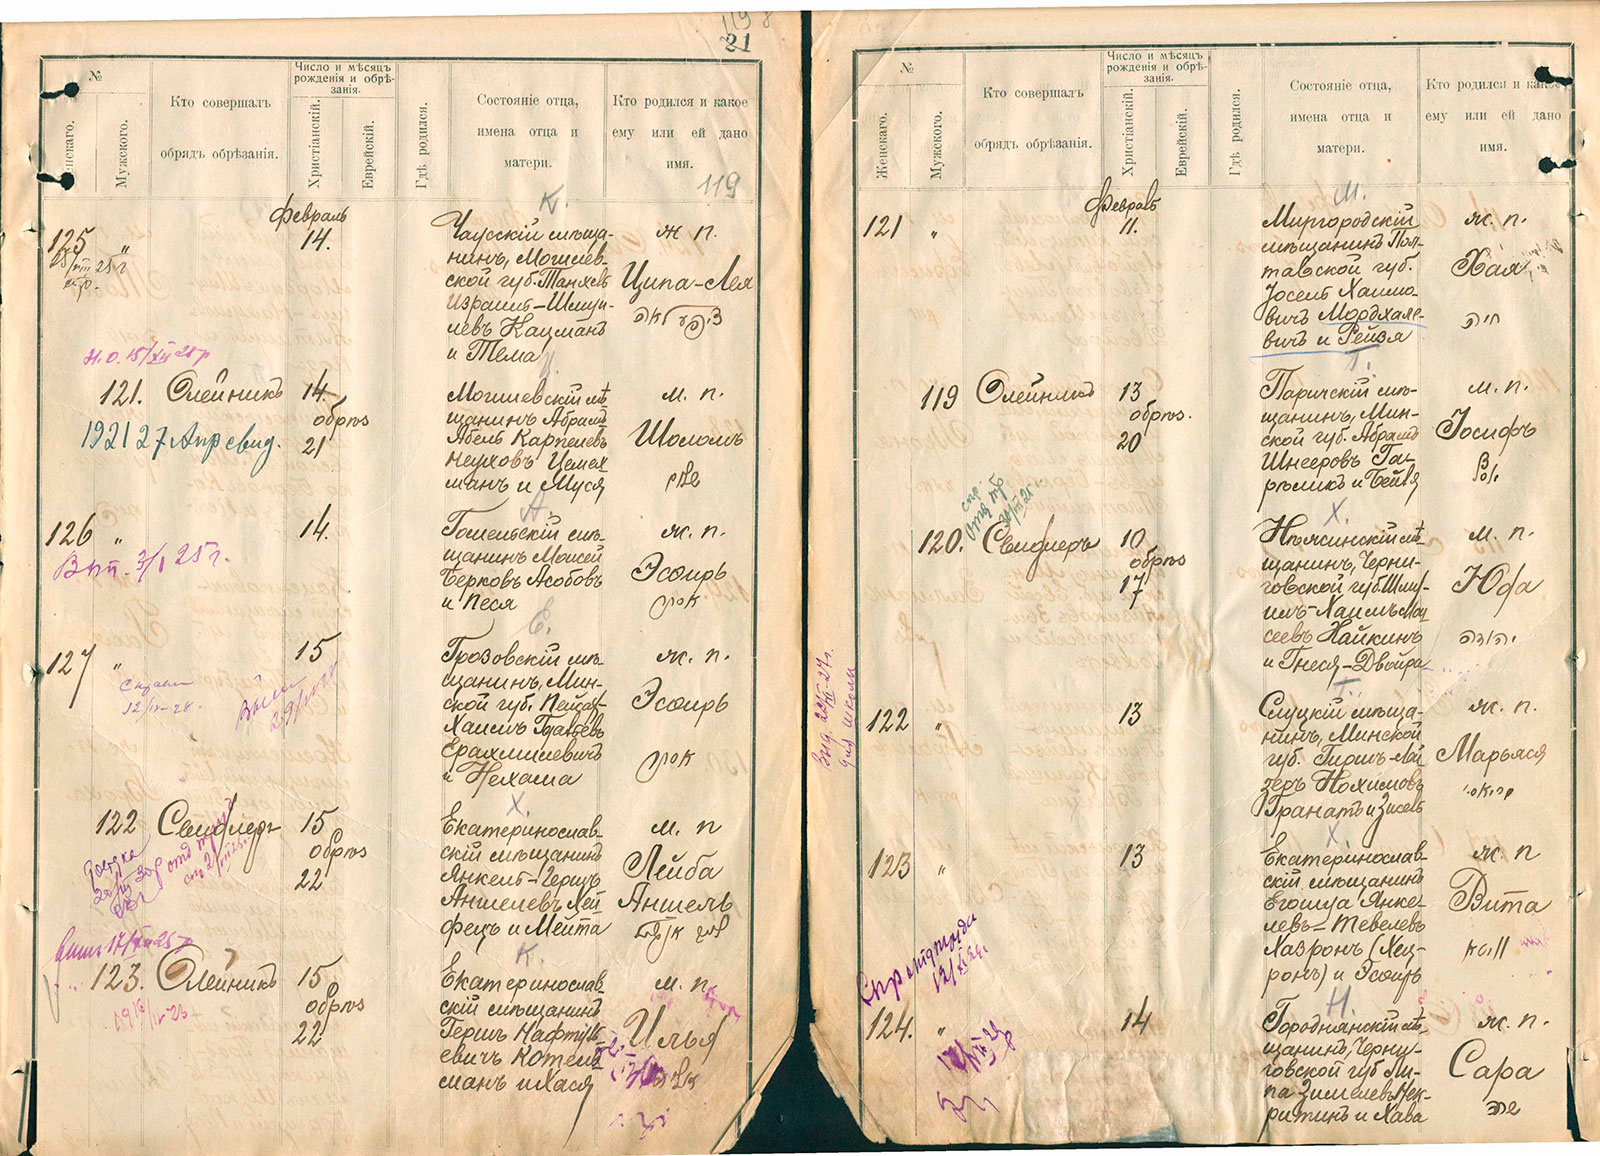 119
21
№
Женскаго.
Мужского.
Кто совершалъ
обрядъ обрѣзанія.
Число и мѣсяцъ
рожденія и обрѣ-
занія.
Христіанскій.
Еврейскій.
Гдѣ родился.
Состояніе отца,
имена отца и
матери.
Кто родился и какое
ему или ей дано
имя.
119
К.
Февраль
125 „ 14.
Чаусскій мѣща-
нинъ, Могилев-
ской губ. Танхев
Израиль-Шмуй-
левъ Кацманъ
и Тема
ж п.
Ципа-Лея
ציפע לאה
121. Олейникъ 14.
обрѣз
21
1921 27 Апр евид.
Могилевскій мѣ-
щанинъ Абрамъ
Абель Карпелевъ
и Муся
м. п.
Шоломъ
שלם
А.
126 „ 14.
Вып. 3/I 25 г.
Гомельскій мѣ-
щанинъ Моисей
Берковъ Асобовъ
и Песя
ж. п.
Эсѳирь
אסתר
Е.
127 „ 15
Грозовскій мѣ-
щанинъ, Мин-
ской губ. Пейсах-
Хаимъ
Ерахмилевичъ
и Нехама
ж. п.
Эсѳирь
אסתר
Х.
122 Свидлеръ 15
обрѣз
22
Екатеринослав-
скій мѣщанинъ
Янкель-Герцъ
Аншелевъ Хей-
фецъ и Мейта
м. п
Лейба
Аншель
К.
123. Олейникъ 15
обрѣз
22
Екатеринослав-
скій мѣщанинъ
Гершъ Нафтул-
евичъ Котель-
манъ и Хася
м. п.
Илья
№
Женскаго.
Мужского.
Кто совершалъ
обрядъ обрѣзанія.
Число и мѣсяцъ
рожденія и обрѣ-
занія.
Христіанскій.
Еврейскій.
Гдѣ родился.
Состояніе отца,
имена отца и
матери.
Кто родился и какое
ему или ей дано
имя.
М.
Февраль
121 „ 11.
Миргородскій
мѣщанинъ Пол-
тавской губ.
Іосель Хаимо-
вичъ Мордхале-
вичъ и Рейзя
ж. п.
Хая
חיה
Г.
119 Олейникъ 13
обрѣз.
20
Паричскій мѣ-
щанинъ, Мин-
ской губ. Абрамъ
Шнееровъ Га-
рѣликъ и Бейля
м. п.
Іосифъ
יוסף
Х.
120. Свидлеръ 10
обрѣз
17
щанинъ, Черни-
говской губ. Шму-
иль-Хаимъ Мов-
сеевъ Хайкинъ
и Гнеся-Двойра
м. п.
Юда
יהודה
Г.
122 „ 13
Слуцкій мѣща-
нинъ, Минской
губ. Гирш-Лей-
зеръ Нохимовъ
Гранатъ и Зисель
ж. п.
Марьяся
מריאסי
Выд. 22/XI-27 г.
для школы
Х.
123 „ 13
Екатеринослав-
скій мѣщанинъ
Егошуа Янке-
левъ-Тевелевъ
Хазронъ (Хец-
ронъ) и Эсѳирь
ж. п
Вита
וויטא
Н
124. „ 14
Городнянскій мѣ-
щанинъ, Черни-
говской губ. Ли-
па Зимелевъ Нек-
ритинъ и Хава
ж. п.
Сара
שרה